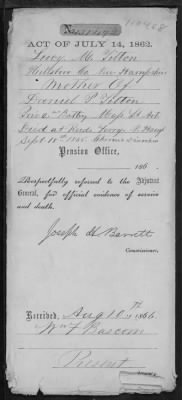 ACT OF JULY 14, 1862.
Lucy M. Tilton
Hillsboro Co New Hampshire
Mother Of
Daniel P. Tilton
Battery Mass Lt Art
Died at
Sept 18th
Pension Office,
186 .
Respectfully referred to the Adjutant
General, for official evidence of service
and death.
Joseph H Barrett
Commissioner.
Received, Aug 10th, 1866
Wm F Bascom
Present